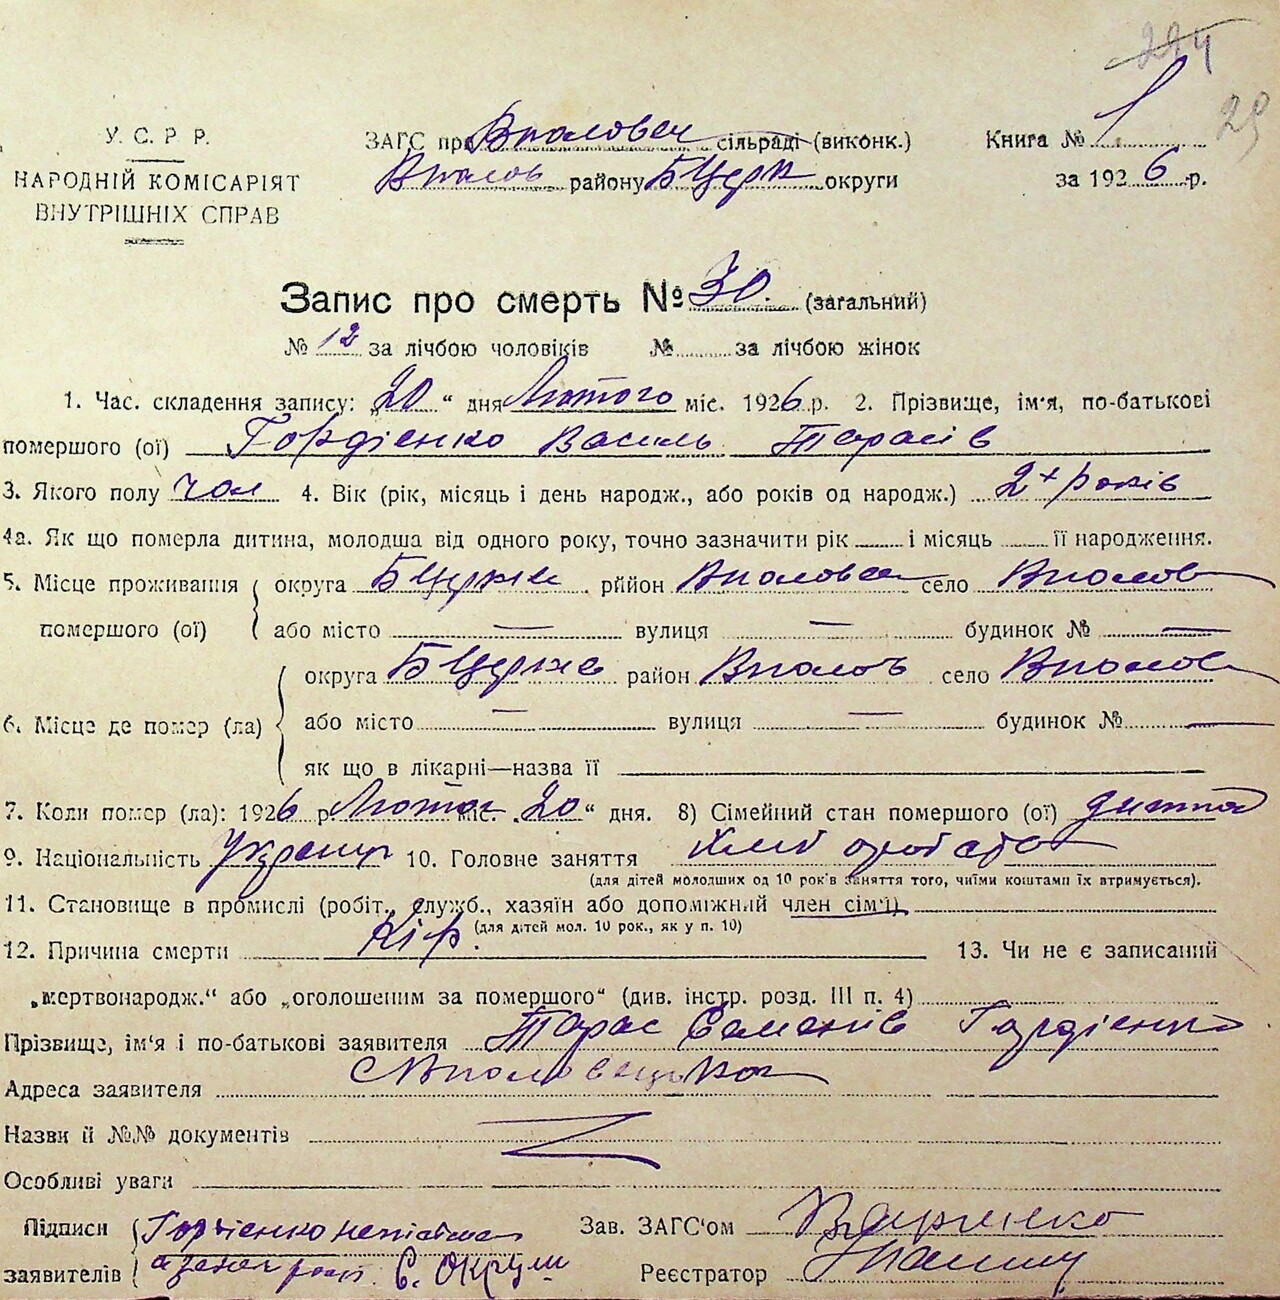 224
29
У. С. Р. Р.
НАРОДНІЙ КОМІСАРІЯТ
ВНУТРІШНІХ СПРАВ
ЗАГС при Вполовец сільраді (виконк.)
Вполов району БЦерк округи
Книга № 1
за 1926 р.
Запис про смерть № 30. (загальний)
№ 12 за лічбою чоловіків № за лічбою жінок
1. Час. складення запису: „20" дня Лютого міс. 1926 р. 2. Прізвище, ім'я, по-батькові
помершого (ої) Гордієнко Василь Тарасів
3. Якого полу чол 4. Вік (рік, місяць і день народж., або років од народж.) 2х років
4а. Як що померла дитина, молодша від одного року, точно зазначити рік і місяць її народження.
5. Місце проживання помершого (ої) округа БЦеркв рйион Вполовец село Вполов
або місто — вулиця — будинок № —
6. Місце де помер (ла) округа БЦеркв район Вполов село Вполов
або місто — вулиця — будинок № —
як що в лікарні—назва її
7. Коли помер (ла): 1926 р. Лютог міс. „20" дня. 8) Сімейний стан помершого (ої) дитина
9. Національність Украінц 10. Головне заняття
(для дітей молодших од 10 років заняття того, чиїми коштами їх втримується).
11. Становище в промислі (робіт., служб., хазяїн або допоміжний член сім'ї)
(для дітей мол. 10 рок., як у п. 10)
12. Причина смерти Кір. 13. Чи не є записаний
„мертвонародж." або „оголошеним за помершого" (див. інстр. розд. III п. 4)
Прізвище, ім'я і по-батькові заявителя Тарас Семенів Гордієнко
Адреса заявителя
Назви й №№ документів
Особливі уваги
Підписи Гордієнко неписьмен Зав. ЗАГС'ом
заявителів Реєстратор